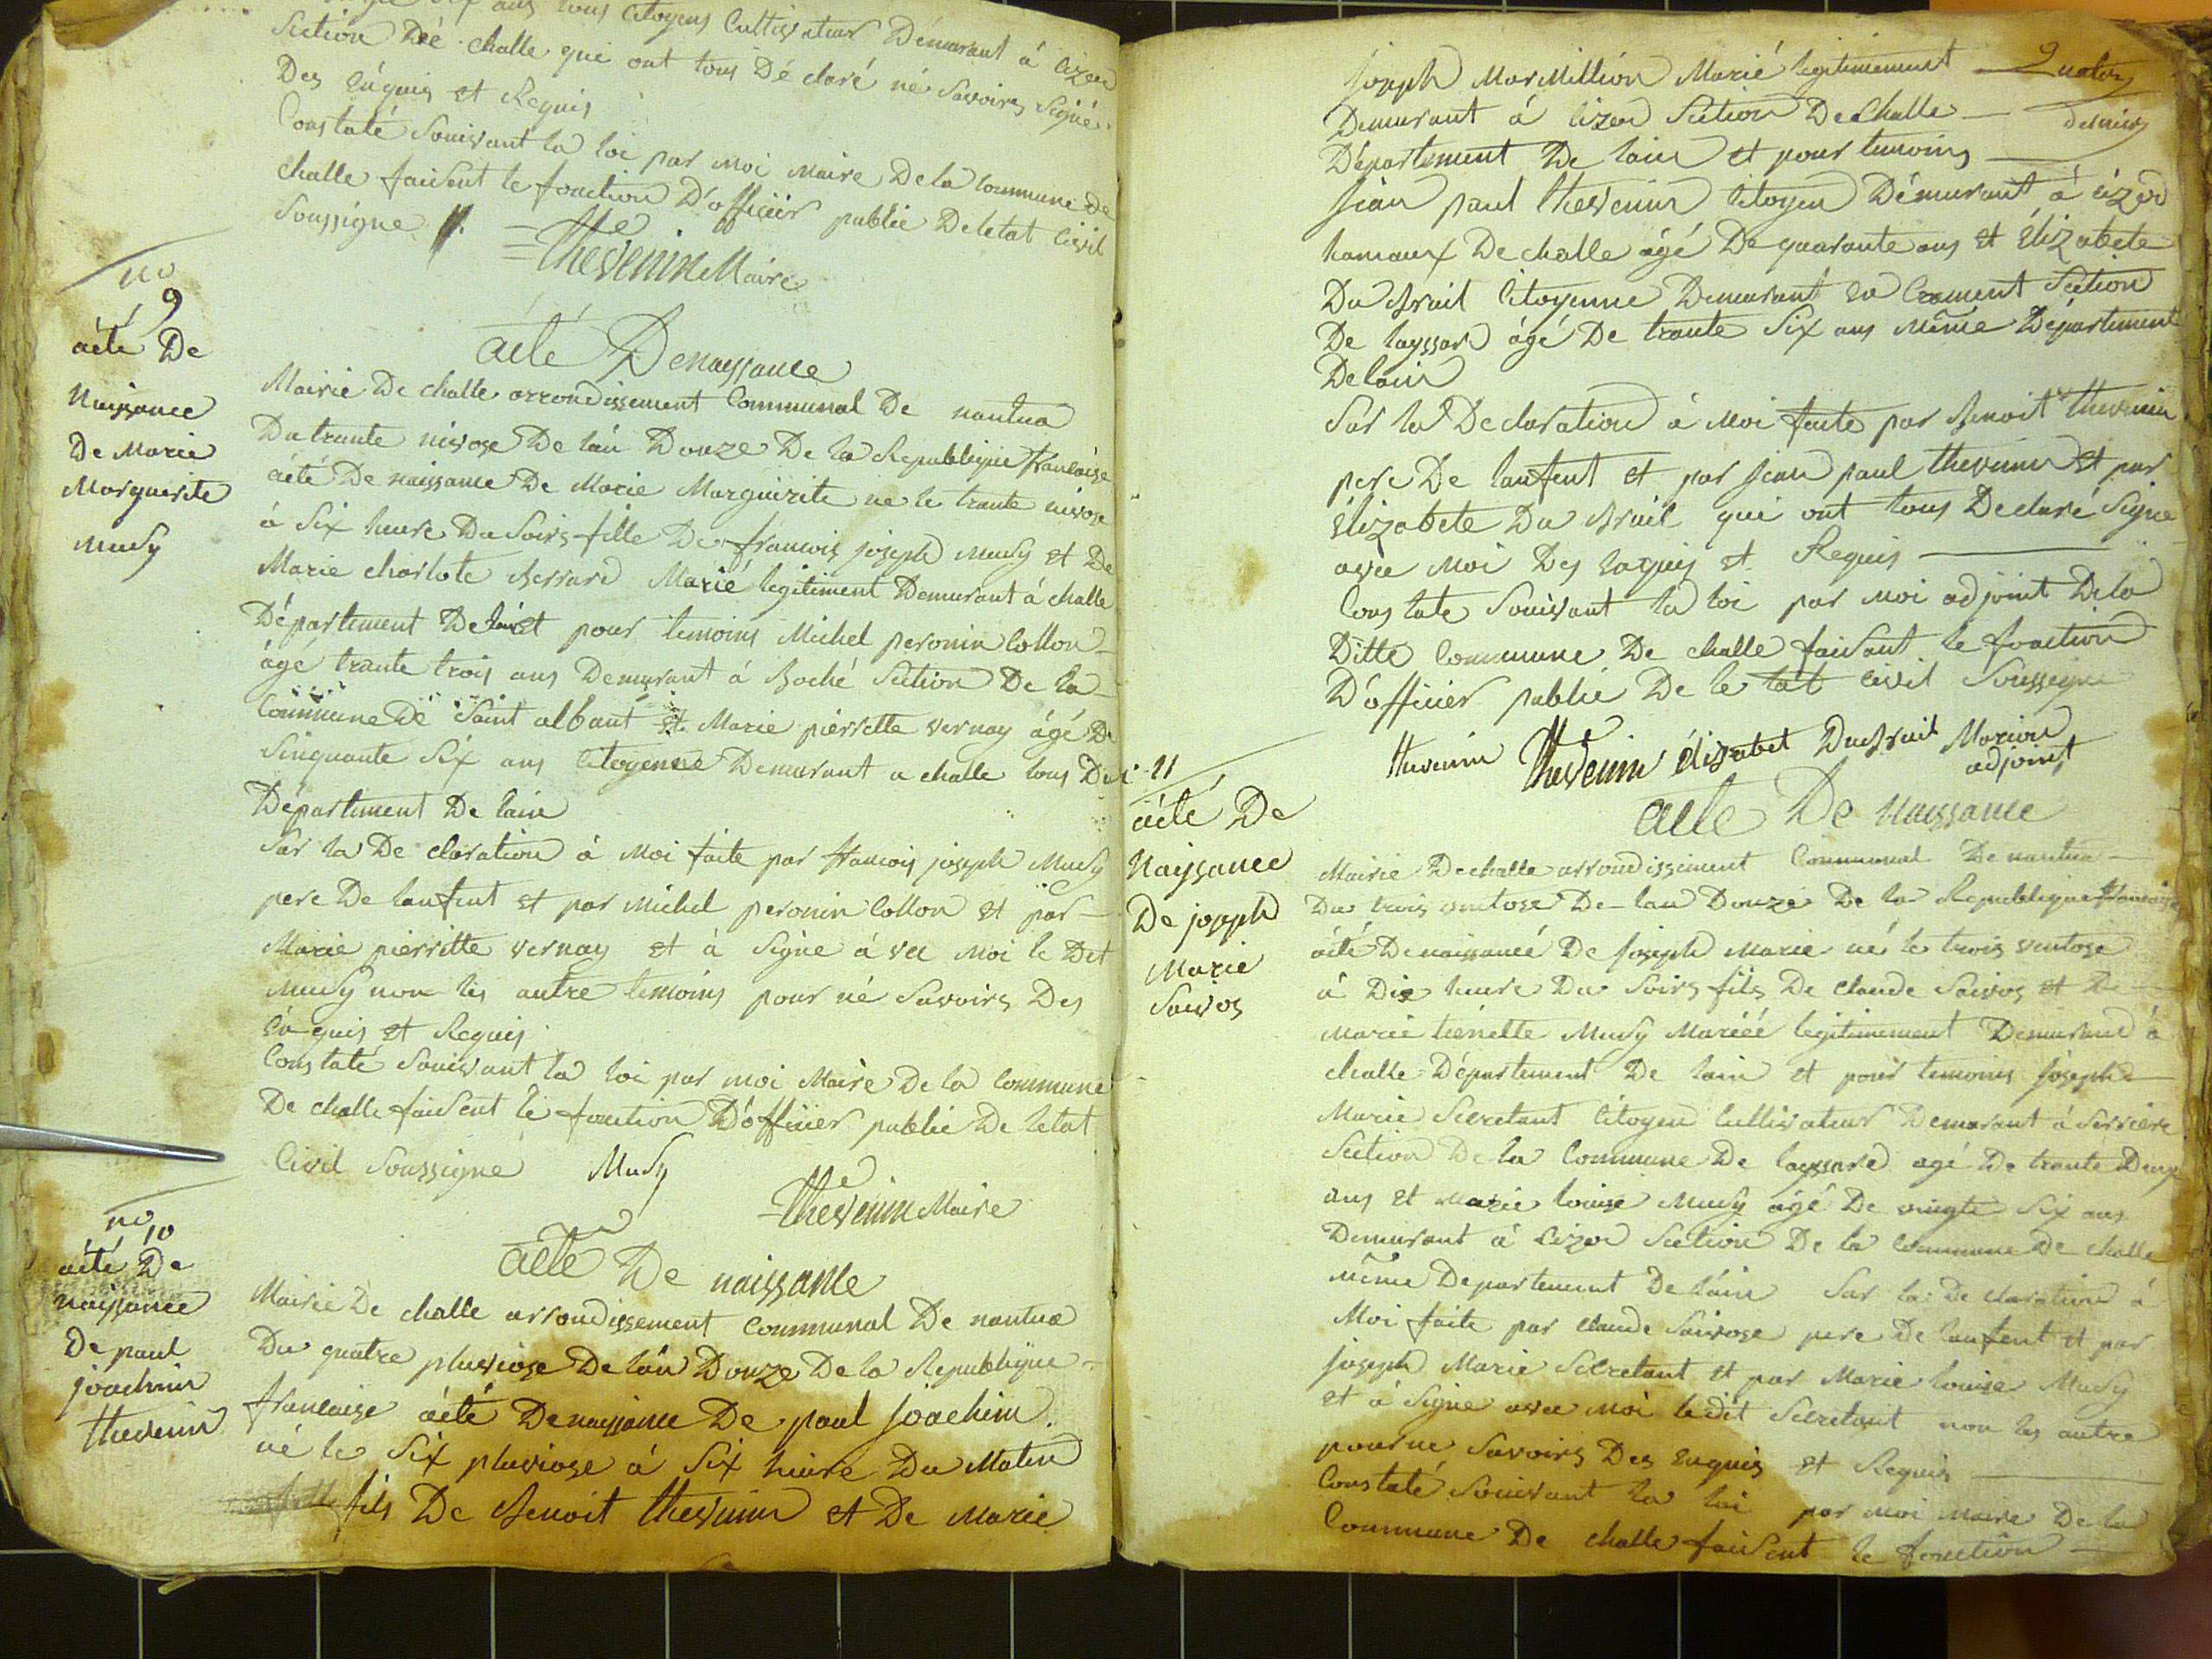 six ans tous Citoyens Cultivateur Démurant á Cizod
Section Dé challe qui ont tous Dé claré né Savoirs Signé
Des Enquis et Requis
Constaté Souivant la loi par moi maire De la Commune De
challe faisent le fonction D'officier public De letat Civil
Soussigne
Thevenin Maire
no
9
acté De
Naissance
De Marie
Morguerite
Musy
acté De naissance
Mairie De challe arrondissement Communal De nantua
Du trante nivose De l'an Douze De la Republique francaise
acté De naissance De Marie Marguirite ne le trante nivose
á Six heure Du Soirs fille De francois joseph Musy et De
Marie charlote Berrard Marié legitiment Demurant á challe
Département De lain et pour temoins Michel peronin Collon
ágé trante trois ans Demurant á Boché Section De la
Commune De Saint albant et Marie pierrette vernay ágé De
Sinquante Six ans Citoyenne Demurant a challe tous Du
Département De lain
Sur la De claration á Moi faite par francois joseph Musy
pere De lanfent et par Michel peronin Collon et par
Marie pierrette vernay et á Signe á vec Moi le Dit
Musy non les autre temoins pour né Savoirs Des
En quis et Requis
Constaté Souivant la loi par moi Maire De la Commune
De challe faisent le fonction D'officier public De letat
Civil Soussigné Musy
Thevenin Maire
no
10
acté De
naissance
De paul
joachim
thevenin
acté De naissance
Mairie De challe arrondissement Communal De nantua
Du quatre pluviose De l'an Douze De la Republique
francaise acté De naissance De paul joachim
né le Six pluviose á Six heure Du Matin
fils De Benoit thevenin et De Marie
joseph MorMillion Marié legitimement
Demurant á Cizod Section De Challe
Département De lain et pour temoins
jean paul thevenin Citoyen Démurant á Cizod
hamaux De challe ágé De quarante ans et Elizabete
Du Brail Citoyenne Demurant Section
De layssard ágé De trante Six ans Même Département
De lain
Sur la Declaration á Moi faite par Benoit thevenin
pere De lanfent et par jean paul thevenin et par
Elizabete Du Brail qui ont tous Declaré Signe
avec Moi Des Enquis et Requis
Constate Souivant la loi par moi adjoint De la
Ditte Commune De challe faisant le fonction
D'officier public De le tat Civil Soussigne
thevenin Thevenin élizabet DuBrail Morion
adjoint
11
acté De
Naissance
De joseph
Marie
Saivos
acte De Naissance
Mairie De challe arrondissiment Communal De nantua
Du trois ventose De lan Douze De la Republique francaise
acté De naissancé De joseph Marie né le trois ventose
á Dix heure Du Soirs fils De claude Saivos et De
Marie Musy Mariéé legitimement Demurand á
challe Département De lain et pour temoins joseph
Marie Secretant Citoyen Cultivateur Demurant á Serriere
Section De la Commune De layssard agé De trante Deux
ans et Marie louise Musy ágé De vingte Six ans
Demurant á Cizod Section De la Commune De challe
même Departement De lain Sur la De claration á
Moi faite par claude Saivose pere De lanfent et par
joseph Marie Secretant et par Marie louise Musy
et á Signe avec Moi le dit Secretant non les autre
pour ne Savoirs Des Enquis et Requis
Constaté Souivant la loi par moi maire De la
Commune De challe faisent le fonction